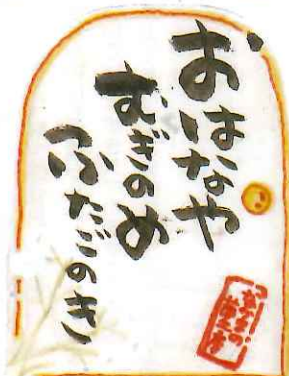 おはなや
むぎのめ
ふたごのき